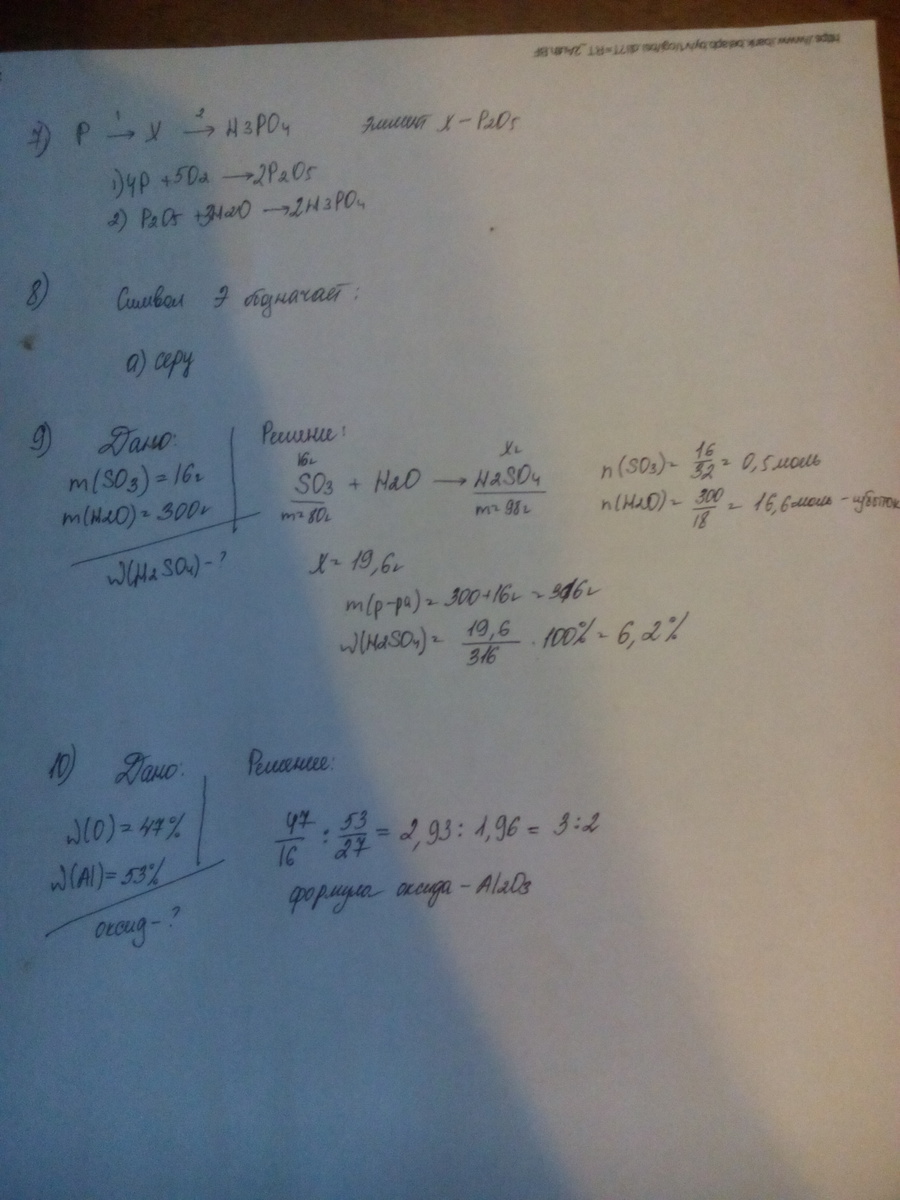 7) P 1→ X 2→ H3PO4 элемент X – P2O5
1) 4P + 5O2 → 2P2O5
2) P2O5 + 3H2O → 2H3PO4
8) Символ Э обозначает:
а) серу
9) Дано:
m(SO3) = 16г
m(H2O) = 300г
W(H2SO4) – ?
Решение:
16г xг
SO3 + H2O → H2SO4
m=80г m=98г
n(SO3) = 16/32 = 0,5 моль
n(H2O) = 300/18 = 16,6 моль – избыток
X = 19,6г
m(р-ра) = 300+16г = 316г
W(H2SO4) = 19,6/316 · 100% = 6,2%
10) Дано:
W(O) = 47%
W(Al) = 53%
оксид – ?
Решение:
47/16 : 53/27 = 2,93 : 1,96 = 3:2
формула оксида – Al2O3